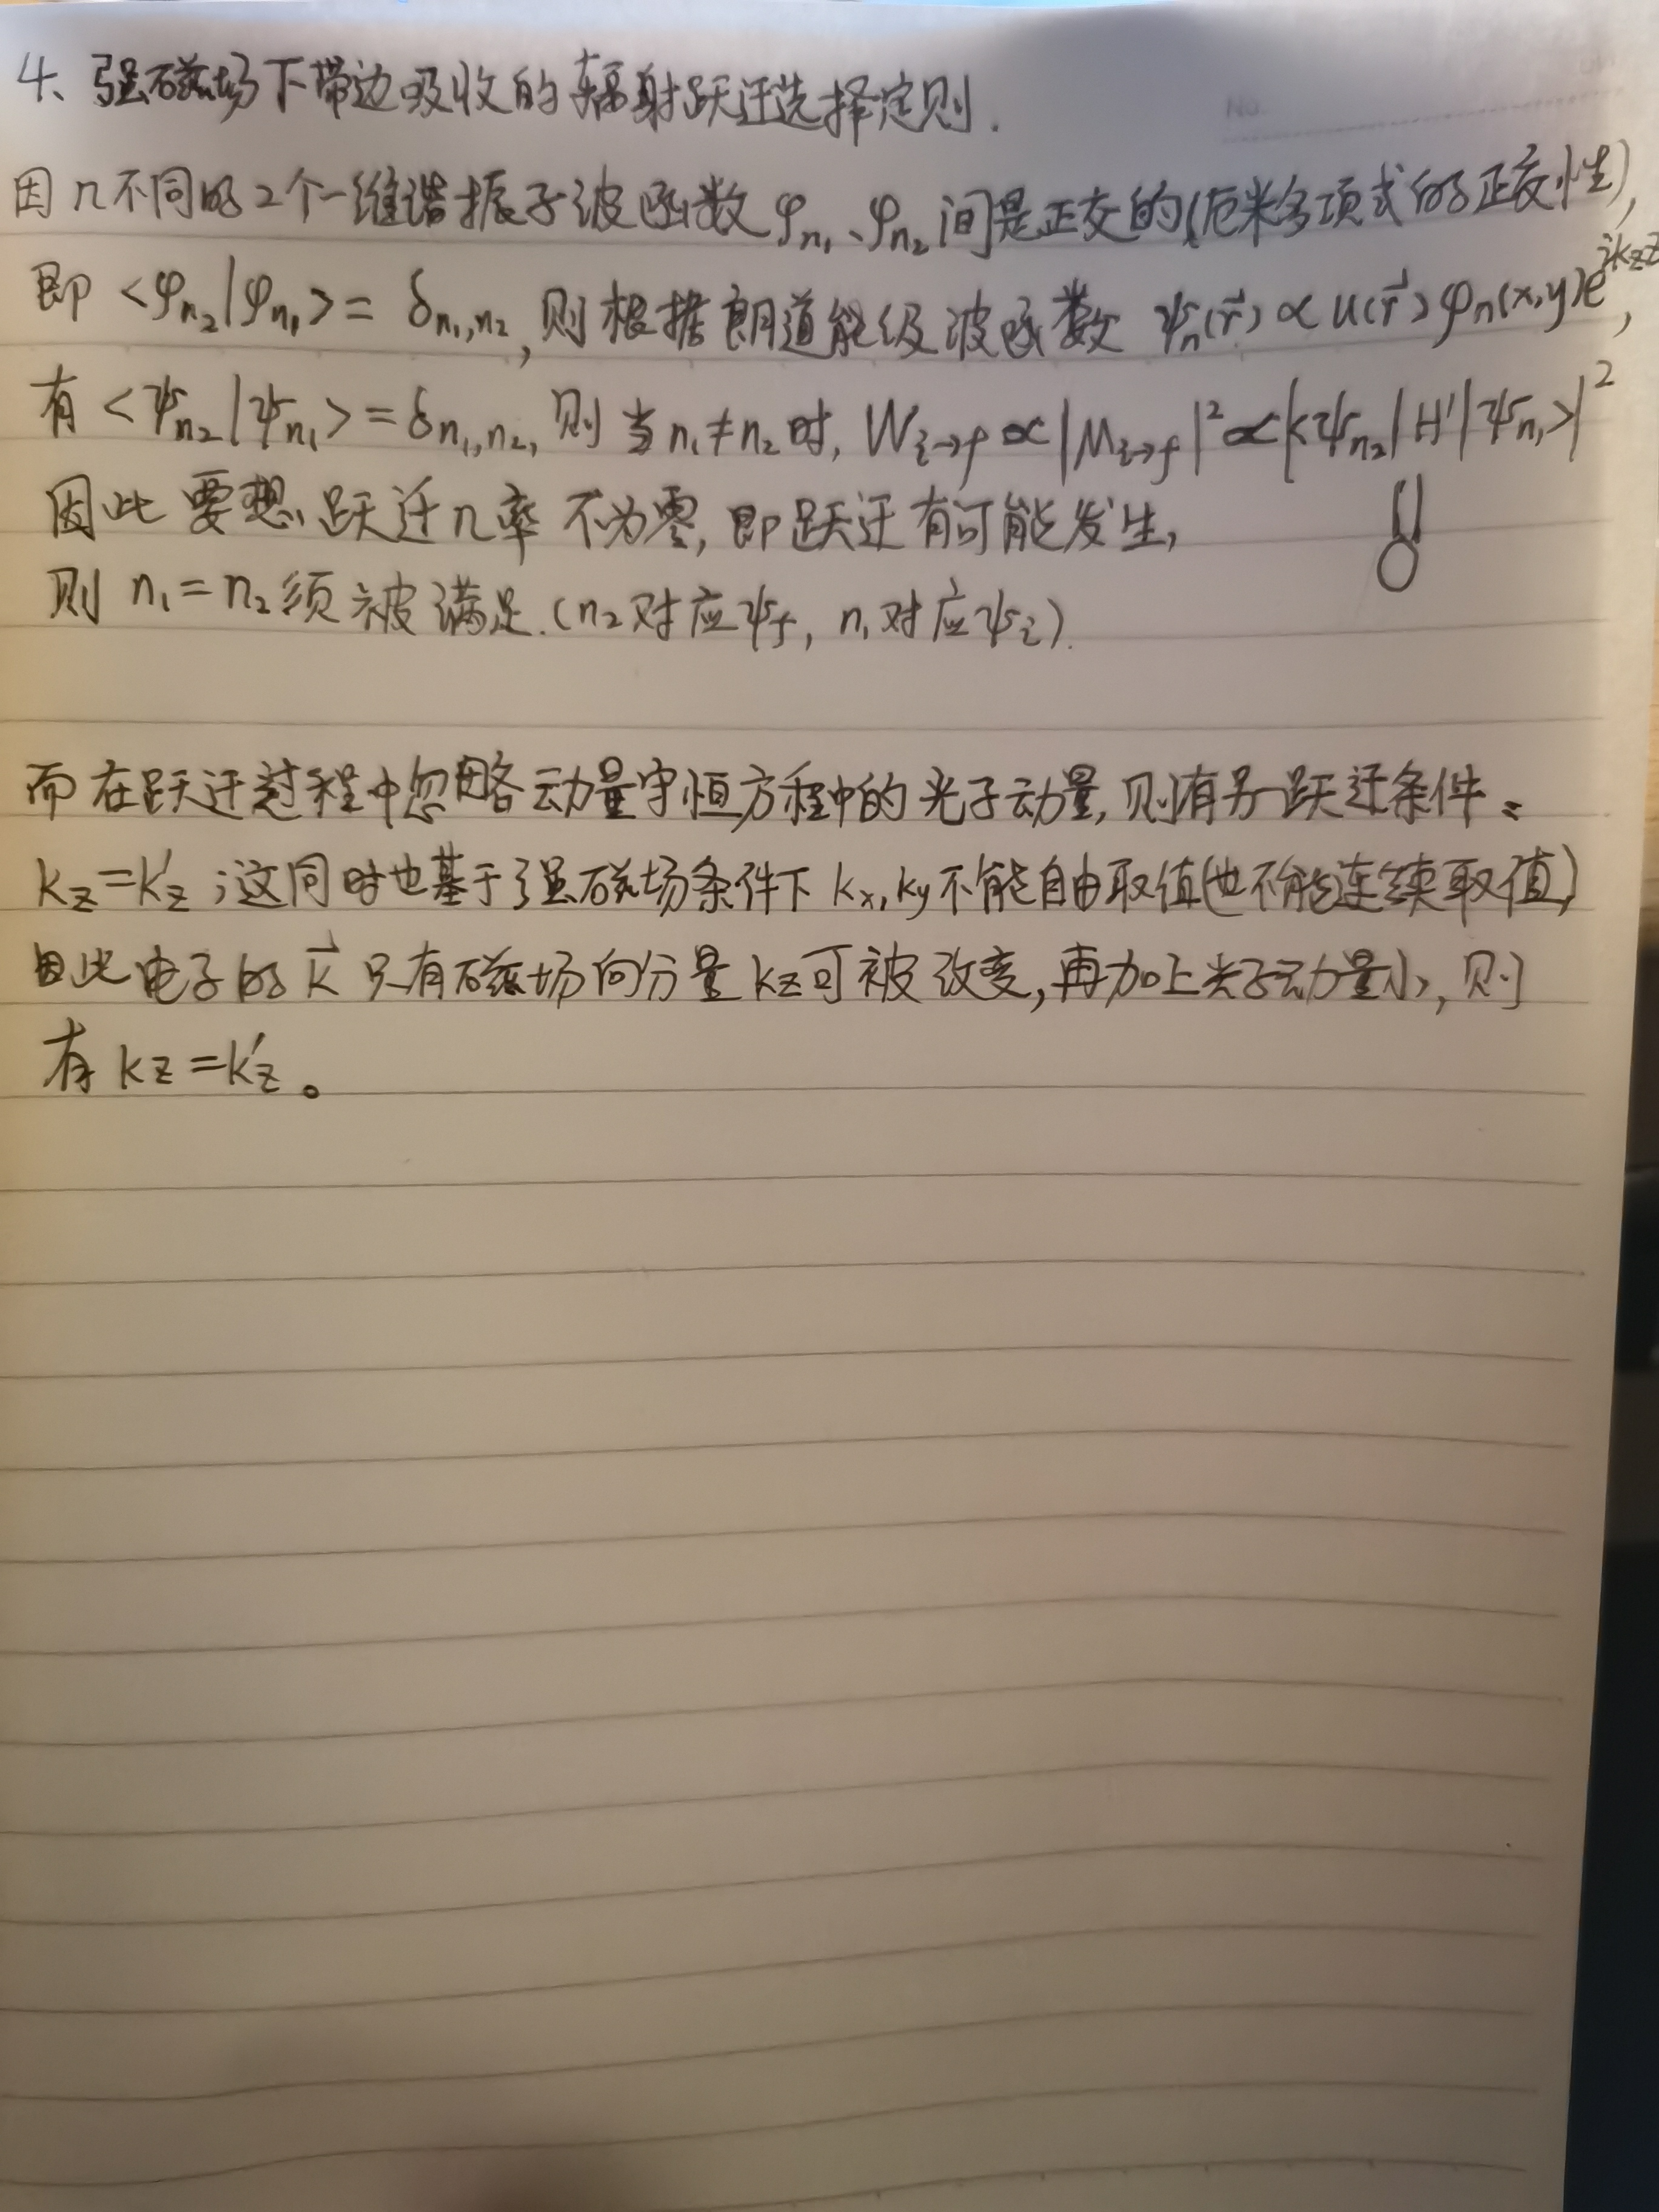 4、强磁场下带边吸收的辐射跃迁选择定则.
因n不同的2个一维谐振子波函数φn₁、φn₂间是正交的(厄米多项式的正交性),
即<φn₂|φn₁>= δn₁,n₂,则根据朗道能级波函数 ψn(r⃗)∝u(r⃗)φn(x,y)e^{ikzz},
有<ψn₂|ψn₁>=δn₁,n₂,则当n₁≠n₂时, Wi→f∝|Mi→f|²∝|<ψn₂|H'|ψn₁>|²
因此要想跃迁几率不为零,即跃迁有可能发生, ‖
则 n₁=n₂须被满足.(n₂对应ψf, n₁对应ψi). 0
而在跃迁过程中忽略动量守恒方程中的光子动量,则有另一跃迁条件:
kz=k'z;这同时也基于强磁场条件下kx,ky不能自由取值(也不能连续取值)
因此电子的k⃗只有磁场向分量kz可被改变,再加上光子动量小,则
有kz=k'z。
No.